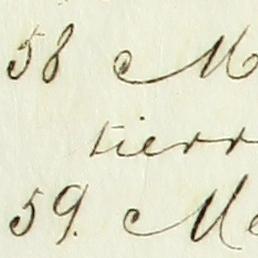 58 M
tierr
59. Me